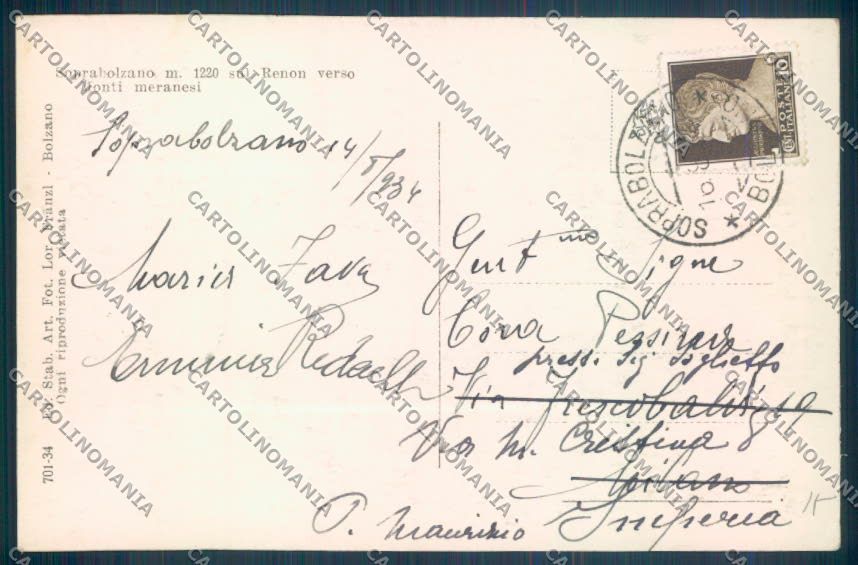 Soprabolzano m. 1220 sul Renon verso
monti meranesi
Soprabolzano 14/8/934
Maria Fava
Erminia Redaelli
Gent.me Signe
Cora
presso Sig.
Via Frescobaldi, 19
Via M. Cristina 8
Milano
P. Maurizio Imperia
15
701-34 Ed. Stab. Art. Fot. Lor. Fränzl - Bolzano
Ogni riproduzione vietata
POSTE ITALIANE
CENT. 10
SOPRABOLZANO * BOLZANO *
CARTOLINOMANIA